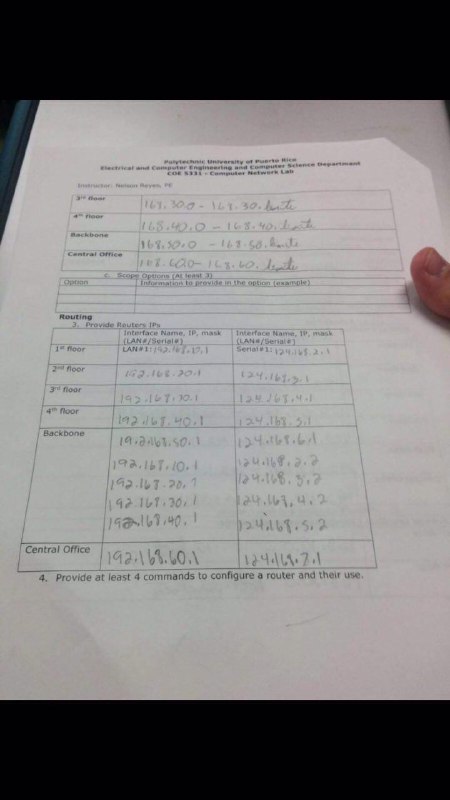 Polytechnic University of Puerto Rico
Electrical and Computer Engineering and Computer Science Department
COE 5331 - Computer Network Lab
Instructor: Nelson Reyes, PE
3rd floor 168.30.0 - 168.30.
4th floor 168.40.0 - 168.40.
Backbone 168.50.0 - 168.50.
Central Office 168.60.0 - 168.60.
c. Scope Options (At least 3)
Option Information to provide in the option (example)
Routing
3. Provide Routers IPs
Interface Name, IP, mask (LAN#/Serial#) Interface Name, IP, mask (LAN#/Serial#)
1st floor LAN#1: 192.168.10.1 Serial#1: 124.168.2.1
2nd floor 192.168.20.1 124.168.3.1
3rd floor 192.168.30.1 124.168.4.1
4th floor 192.168.40.1 124.168.5.1
Backbone 192.168.50.1 124.168.6.1
192.168.10.1 124.168.2.2
192.168.20.1 124.168.3.2
192.168.30.1 124.168.4.2
192.168.40.1 124.168.5.2
Central Office 192.168.60.1 124.168.7.1
4. Provide at least 4 commands to configure a router and their use.